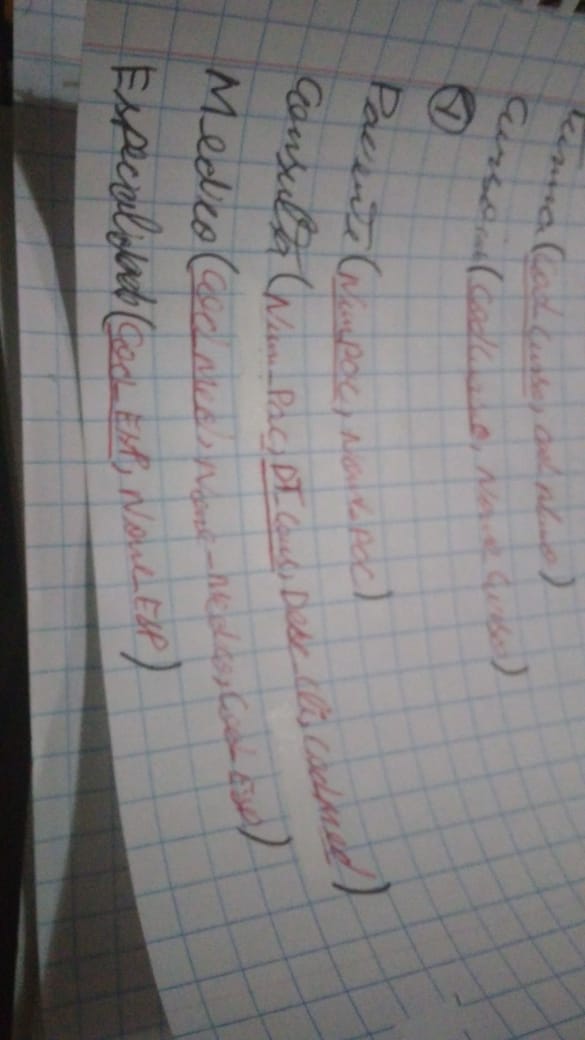 Turma (Cod Curso, cod Aluno)
Curso (CodCurso, Nome Curso)
Paciente (NumPac, NomePac)
Consulta (Num_Pac, DT_Cons, Cod Med)
Medico (Cod Med, Nome_Medico, Cod_Esp)
Especialidad (Cod_ESP, Nome_ESP)